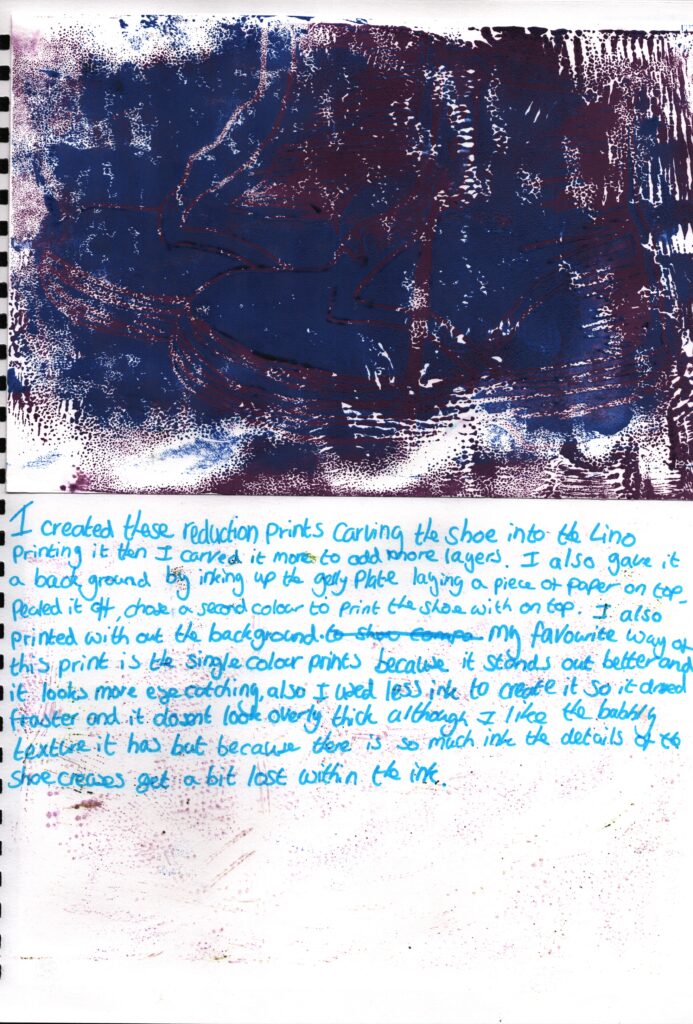 I created these reduction prints carving the shoe into the Lino
Printing it then I carved it more to add more layers. I also gave it
a back ground by inking up the gelly Plate laying a piece of paper on top,
Pealed it off, chose a second colour to print the shoe with on top. I also
printed with out the background. to show compa my favourite way of
this print is the single colour prints because it stands out better and
it looks more eye catching, also I used less ink to create it so it dried
fraster and it dosent look overly thick although I like the bobbly
texture it has but because there is so much ink the details of the
shoe creases get a bit lost within the ink.